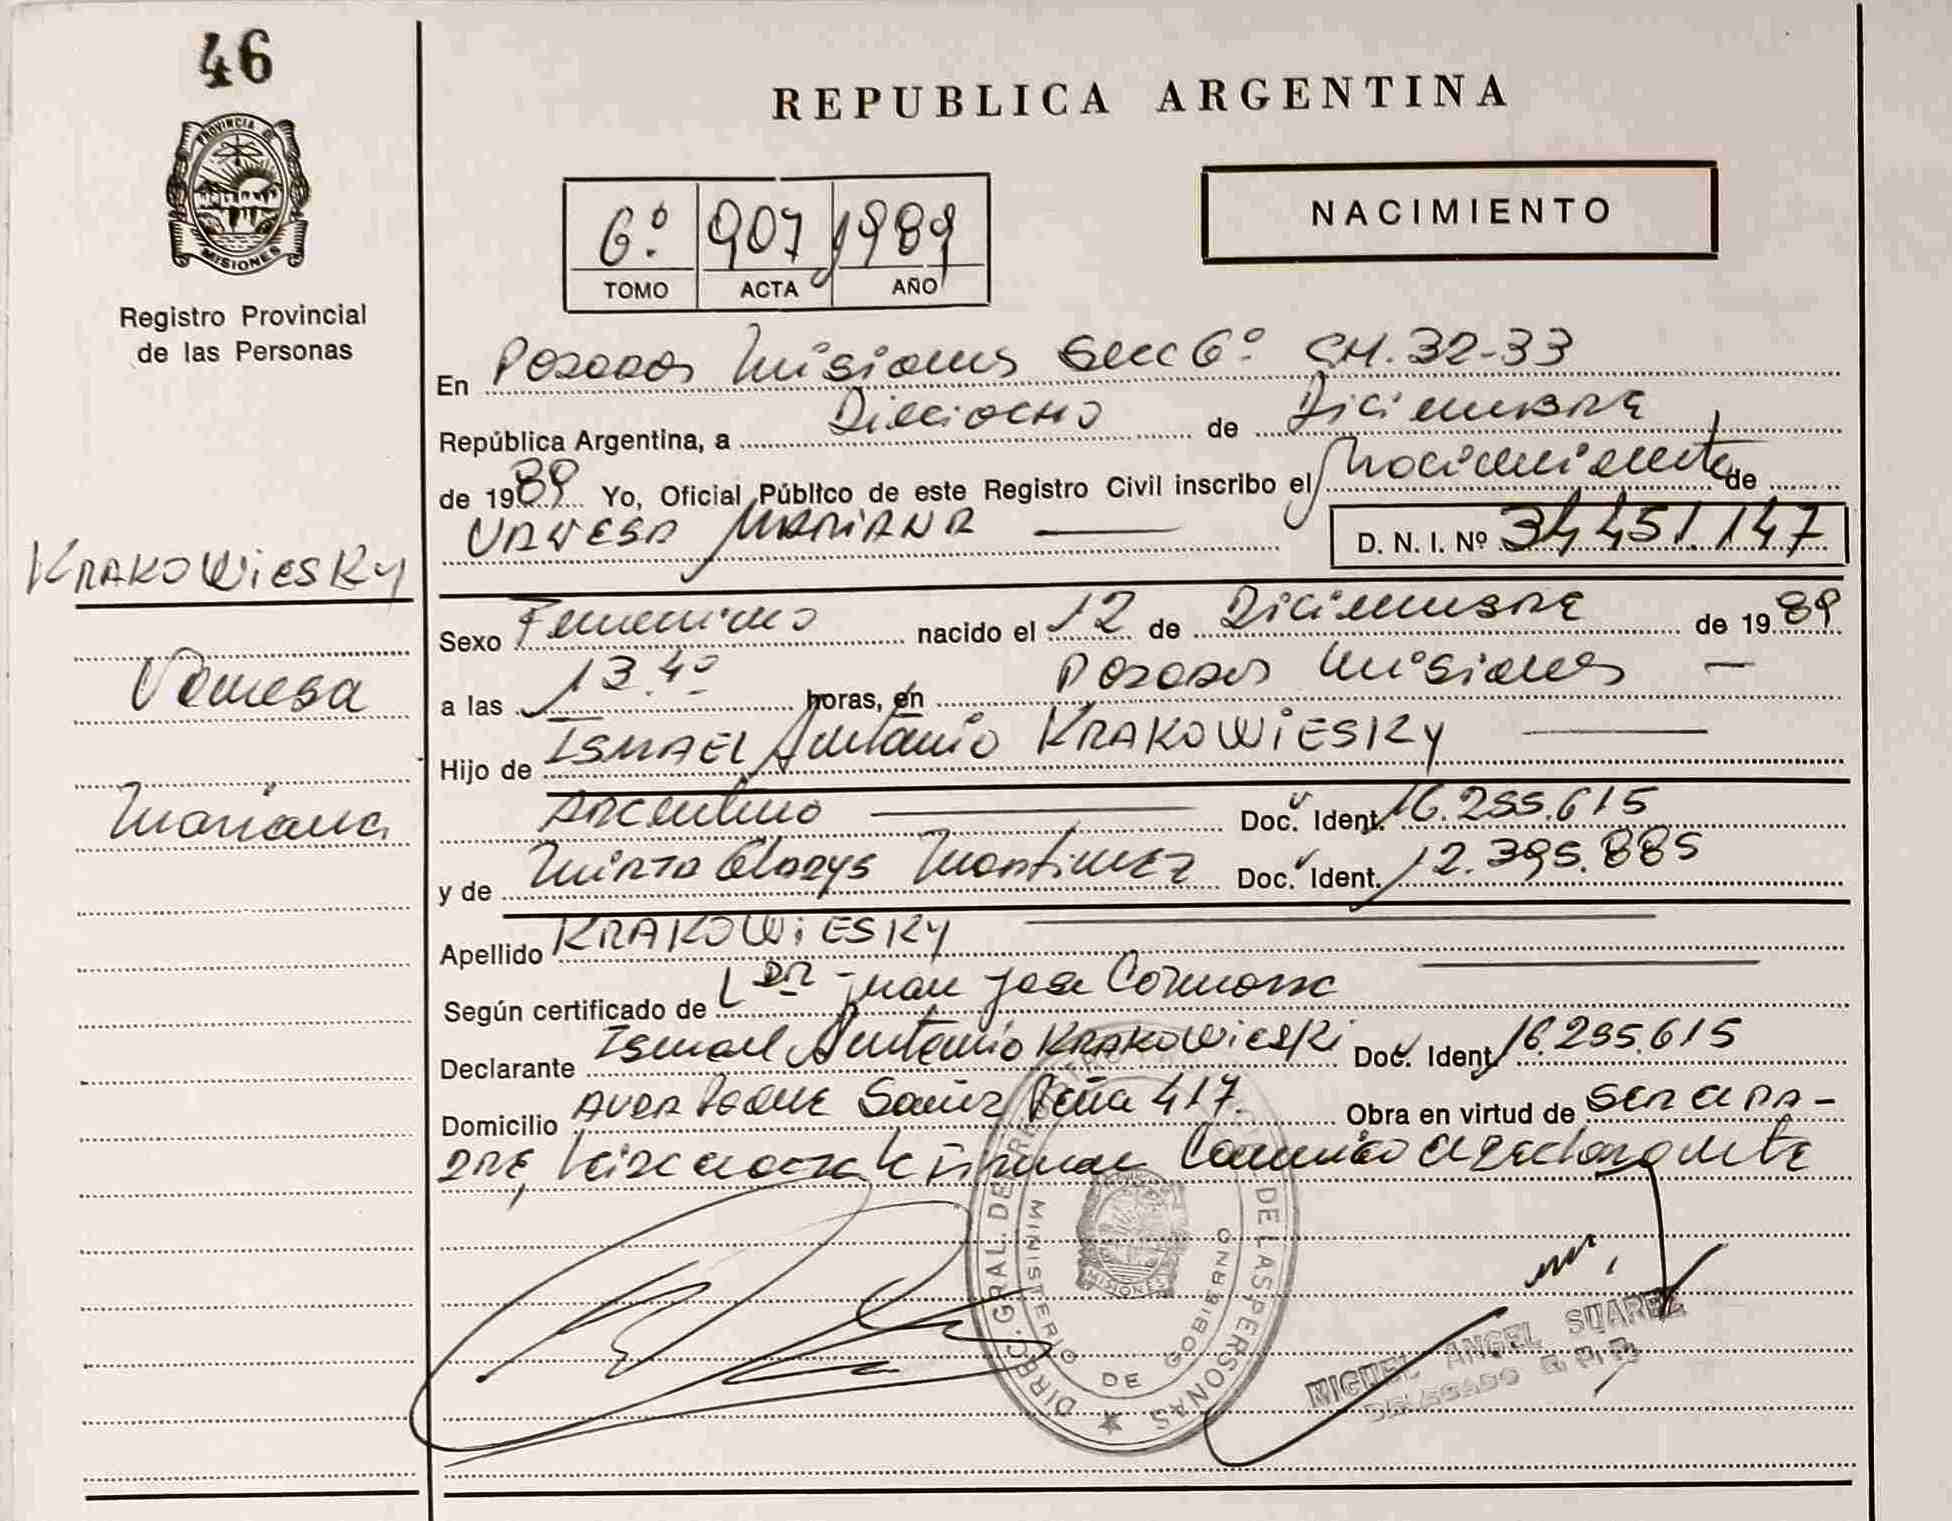 46
PROVINCIA DE
MISIONES
Registro Provincial
de las Personas
KRAKOWiESKy
Vanesa
Mariana
REPUBLICA ARGENTINA
6º 907 1989
TOMO ACTA AÑO
NACIMIENTO
En Posadas Misiones Secc 6º CH. 32-33
República Argentina, a Dieciocho de Diciembre
de 1989 Yo, Oficial Público de este Registro Civil inscribo el Nacimiento de
VANESA MARIANA — D. N. I. Nº 34.451.147
Sexo Femenino nacido el 12 de Diciembre de 1989
a las 13.40 horas, en Posadas Misiones —
Hijo de ISMAEL Antonio KRAKOWiESKy —
Argentino — Doc. Ident. 16.295.615
y de Mirta Gladys Martinez Doc. Ident. 12.395.885
Apellido KRAKOWiESKy —
Según certificado de DR Juan Jose —
Declarante Ismael Antonio KRAKOWiesKi Doc. Ident. 16.295.615
Domicilio AVDA Roque Saenz Peña 417. Obra en virtud de SER el PA-
DRE, Leida el acta la firman Conmigo el declarante
DIREC. GRAL. DE DE LAS PERSONAS
MINISTERIO DE GOBIERNO
MISIONES
MIGUEL ANGEL SUAREZ
DELEGADO R. P. P.